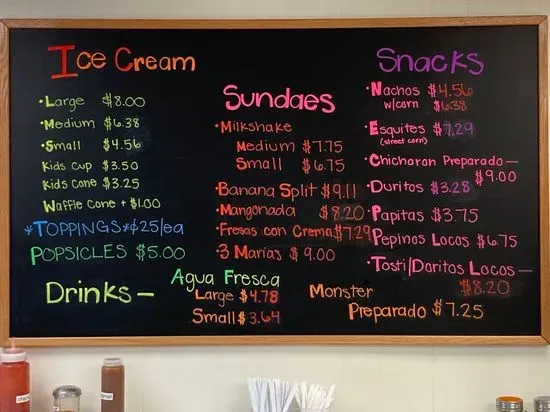 Ice Cream
• Large $8.00
• Medium $6.38
• Small $4.56
Kids Cup $3.50
Kids Cone $3.25
Waffle Cone + $1.00
*TOPPINGS*¢25/ea
POPSICLES $5.00
Sundaes
• Milkshake
Medium $7.75
Small $6.75
• Banana Split $9.11
• Mangonada $8.20
• Fresas con Crema $7.29
• 3 Marias $9.00
Snacks
• Nachos $4.56
w/corn $6.38
• Esquites $7.29
(street corn)
• Chicharon Preparado —
$9.00
• Duritos $3.28
• Papitas $3.75
Pepinos Locos $6.75
• Tosti/Doritos Locos —
$8.20
Drinks —
Agua Fresca
Large $4.78
Small $3.64
Monster
Preparado $7.25